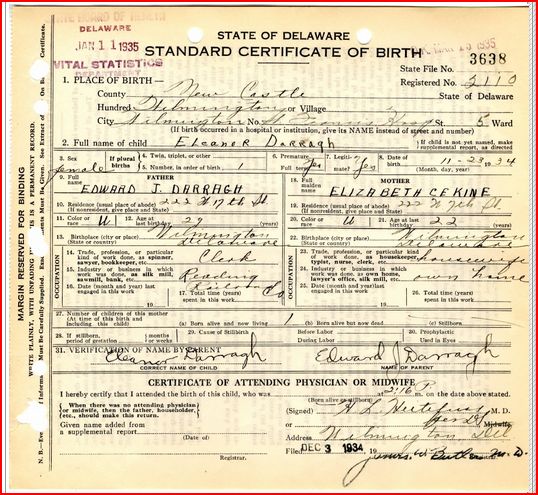 STATE BOARD OF HEALTH
DELAWARE
JAN 11 1935
VITAL STATISTICS
DEPARTMENT
STATE OF DELAWARE
STANDARD CERTIFICATE OF BIRTH
1935
State File No. 3638
Registered No. 2110
1. PLACE OF BIRTH—
County New Castle State of Delaware
Hundred Wilmington or Village
City Wilmington St. Francis Hosp St. 5 Ward
(If birth occurred in a hospital or institution, give its NAME instead of street and number)
2. Full name of child Eleanor Darragh { If child is not yet named, make supplemental report, as directed
3. Sex female If plural births 4. Twin, triplet, or other 5. Number, in order of birth 1 6. Premature Full term Yes 7. Legitimate? Yes 8. Date of birth 11-23, 1934
(Month, day, year)
9. Full name FATHER EDWARD J. DARRAGH
18. Full maiden name MOTHER ELIZABETH CEKINE
10. Residence (usual place of abode) 222 W 17th St
(If nonresident, give place and State)
19. Residence (usual place of abode)
(If nonresident, give place and State)
11. Color or race W 12. Age at last birthday 29 (Years)
20. Color or race W 21. Age at last birthday 22 (Years)
13. Birthplace (city or place) Wilmington
(State or country) Delaware
22. Birthplace (city or place) Wilmington
(State or country) Delaware
OCCUPATION
14. Trade, profession, or particular kind of work done, as spinner, sawyer, bookkeeper, etc. Clerk
15. Industry or business in which work was done, as silk mill, sawmill, bank, etc. Reading Railroad Co
16. Date (month and year) last engaged in this work 19 17. Total time (years) spent in this work
OCCUPATION
23. Trade, profession, or particular kind of work done, as housekeeper, typist, nurse, clerk, etc. housewife
24. Industry or business in which work was done, as own home, lawyer's office, silk mill, etc. own home
25. Date (month and year) last engaged in this work 19 26. Total time (years) spent in this work
27. Number of children of this mother
(At time of this birth and including this child) (a) Born alive and now living 1 (b) Born alive but now dead (c) Stillborn
28. If stillborn, period of gestation months or weeks 29. Cause of Stillbirth Before Labor During Labor 30. Prophylactic Used in Eyes
31. VERIFICATION OF NAME BY PARENT Eleanor Darragh Edward J Darragh
CORRECT NAME OF CHILD NAME OF PARENT
CERTIFICATE OF ATTENDING PHYSICIAN OR MIDWIFE
I hereby certify that I attended the birth of this child, who was (Born alive or stillborn) at 3:16 P. m. on the date above stated.
{ When there was no attending physician or midwife, then the father, householder, etc., should make this return. }
(Signed) M. D.
Midwife
Given name added from a supplemental report
(Date of)
Address Wilmington Del
Filed DEC 3 1934, 19
Registrar.
MARGIN RESERVED FOR BINDING